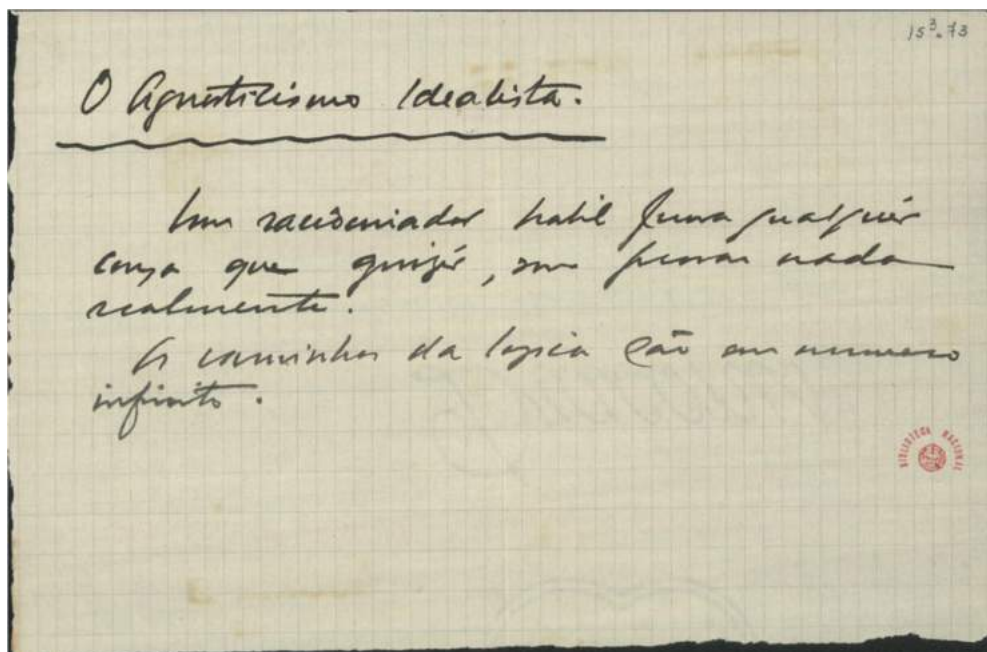 15³-73
O Agnosticismo Idealista.
Um raciocinador habil prova qualquér
cousa que quizér, sem provar nada
realmente.
Os caminhos da logica são em numero
infinito.
BIBLIOTECA NACIONAL